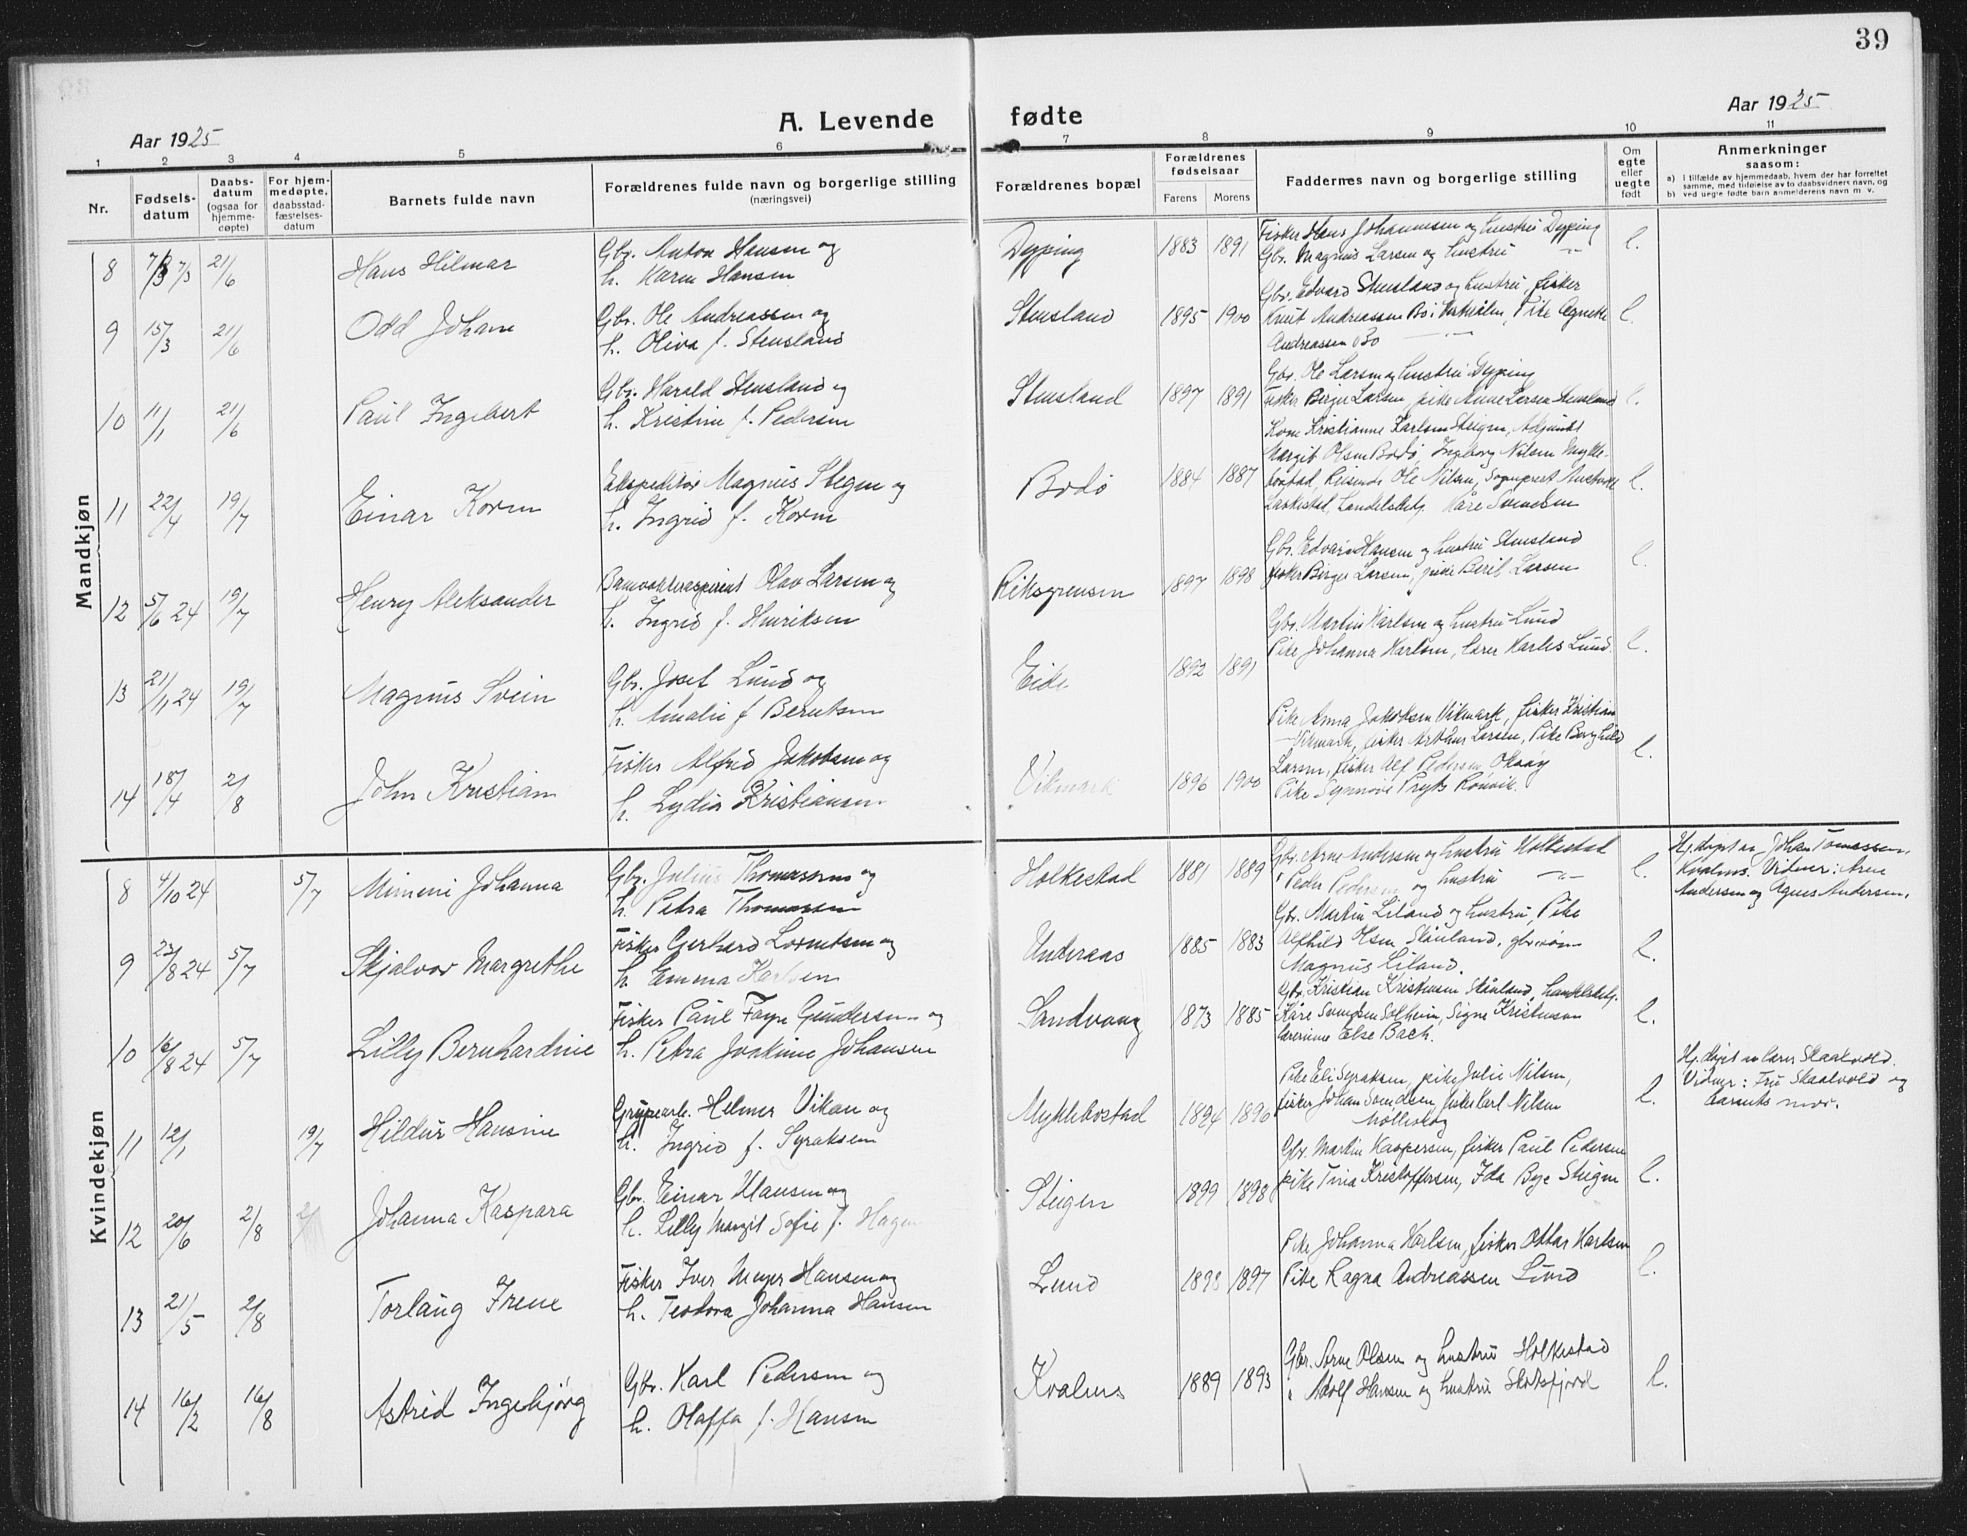 39
Aar 1925
A. Levende fødte
Aar 1925
1 2 3 4 5 6 7 8 9 10 11
Nr.
Fødsels-
datum
Daabs-
datum
(ogsaa for
hjemme-
døpte)
For hjem-
medøpte,
daabsstad-
fæstelses-
datum
Barnets fulde navn
Forældrenes fulde navn og borgerlige stilling
(næringsvei)
Forældrenes bopæl
Forældrenes
fødselsaar
Farens Morens
Faddernes navn og borgerlige stilling
Om
egte
eller
uegte
født
Anmerkninger
saasom:
a) I tilfælde av hjemmedaab, hvem der har forrettet
samme, med tilføielse av to daabsvidners navn, og
b) ved uegte fødte barn anmelderens navn m. v.
Mandkjøn
8 7/3 21/6 Hans Hilmar
Gbr. Anton Hansen og
h. Karen Hansen
Dyping 1883 1891
Fisker Hans Johannesen og hustru Dyping
Gbr. Magnus Larsen og hustru -"-
9 15/3 21/6 Odd Johan
Gbr. Ole Andreassen og
h. Oliva f. Stensland
Stensland 1895 1900
Gbr. Edvard Stensland og hustru, fisker
Knut Andreassen Bø i Vesterålen, Pike Agnethe
Andreassen Bø -"-
10 11/1 21/6 Paul Ingebert
Gbr. Harald Stensland og
h. Kristine f. Pedersen
Stensland 1897 1891
Gbr. Ole Larsen og hustru Dyping
Fisker Birger Larsen, pike Anne Larsen Stensland
11 22/4 19/7 Einar Koren
Ekspeditør Magnus Stegen og
h. Ingrid f. Koren
Bodø 1884 1887
Kone Kristianne Karlsen Steigen, Adjunkt
Margit Olsen Bodø, Ingeborg Nilsen Mykle-
bostad, Reisende Ole Nilsen, Sogneprest
Laskestad, Handelsbetj. Kåre Svendsen
12 5/6 24 19/7 Henry Aleksander
Olav Larsen og
h. Ingrid f. Henriksen
Riksgrensen 1897 1898
Gbr. Edvard Hansen og hustru Stensland
fisker Birger Larsen, pike Berit Larsen
13 21/11 24 19/7 Magnus Svein
Gbr. Josef Lund og
h. Amalie f Berntsen
Eide 1892 1891
Gbr. Martin Karlsen og hustru Lund
Pike Johanna Karlsen, lærer Karles Lund.
14 18/4 2/8 John Kristian
Fisker Alfred Jakobsen og
h. Lydia Kristiansen
Vikmark 1896 1900
Pike Anna Jakobsen Vikmark, fisker Kristian
Vikmark, fisker Arthur Larsen, Pike Borghild
Larsen, fisker Alf Pedersen,
Pike Synnøve Prytz Rönvik.
Kvindekjøn
8 4/10 24 5/7 Mimmi Johanna
Gbr. Julius Thomassen og
h. Petra Thomassen
Holkestad 1881 1889
Gbr. Arne Andersen og hustru Holkestad
" Peder Pedersen og hustru -"-
Hj. døpt av Johan Tomassen,
Kvalnes. Vidner: Arne
Andersen og Agnes Andersen.
9 23/8 24 5/7 Skjalvor Margrethe
Fisker Gerhard Lorentsen og
h. Emma Karlsen
Underaas 1885 1883
Gbr. Martin Liland og hustru, Pike
Alfhild Olsen Skånland, gbr.sön
Magnus Liland.
10 16/8 24 5/7 Lilly Bernhardine
Fisker Paul Faye Gundersen og
h. Petra Joakime Johansen
Sandvaag 1873 1885
Gbr. Kristian Kristensen Skånland, handelsbetj.
Kåre Svendsen Solheim, Signe Kristensen
lærerinne Else Bach.
11 12/1 19/7 Hildur Hansine
Helmer Vikan og
h. Ingrid f. Syraksen
Myklebostad 1894 1890
Pike Eli Syraksen, pike Julie Nilsen,
fisker Johan Svendsen, fisker Karl Nilsen
Hj. døpt av lærer Skaalvold.
Vidner: Fru Skaalvold og
barnets mor.
12 20/6 2/8 Johanna Kaspara
Gbr. Einar Hansen og
h. Lilly Margit Sofie f. Hagen
Steigen 1899 1898
Gbr. Martin Kaspersen, fisker Paul Pedersen
pike Tina Kristoffersen, Ida Bye Steigen
13 21/5 2/8 Torlaug Irene
Fisker Iver Meyer Hansen og
h. Teodora Johanna Hansen
Lund 1893 1897
Pike Johanna Karlsen, fisker Ottar Karlsen
Pike Ragna Andreassen Lund
14 16/2 16/8 Astrid Ingebjørg
Gbr. Karl Pedersen og
h. Olaffa f. Hansen
Kvalnes 1889 1893
Gbr. Arne Olsen og hustru Holkestad
" Adolf Hansen og hustru Skotsfjord